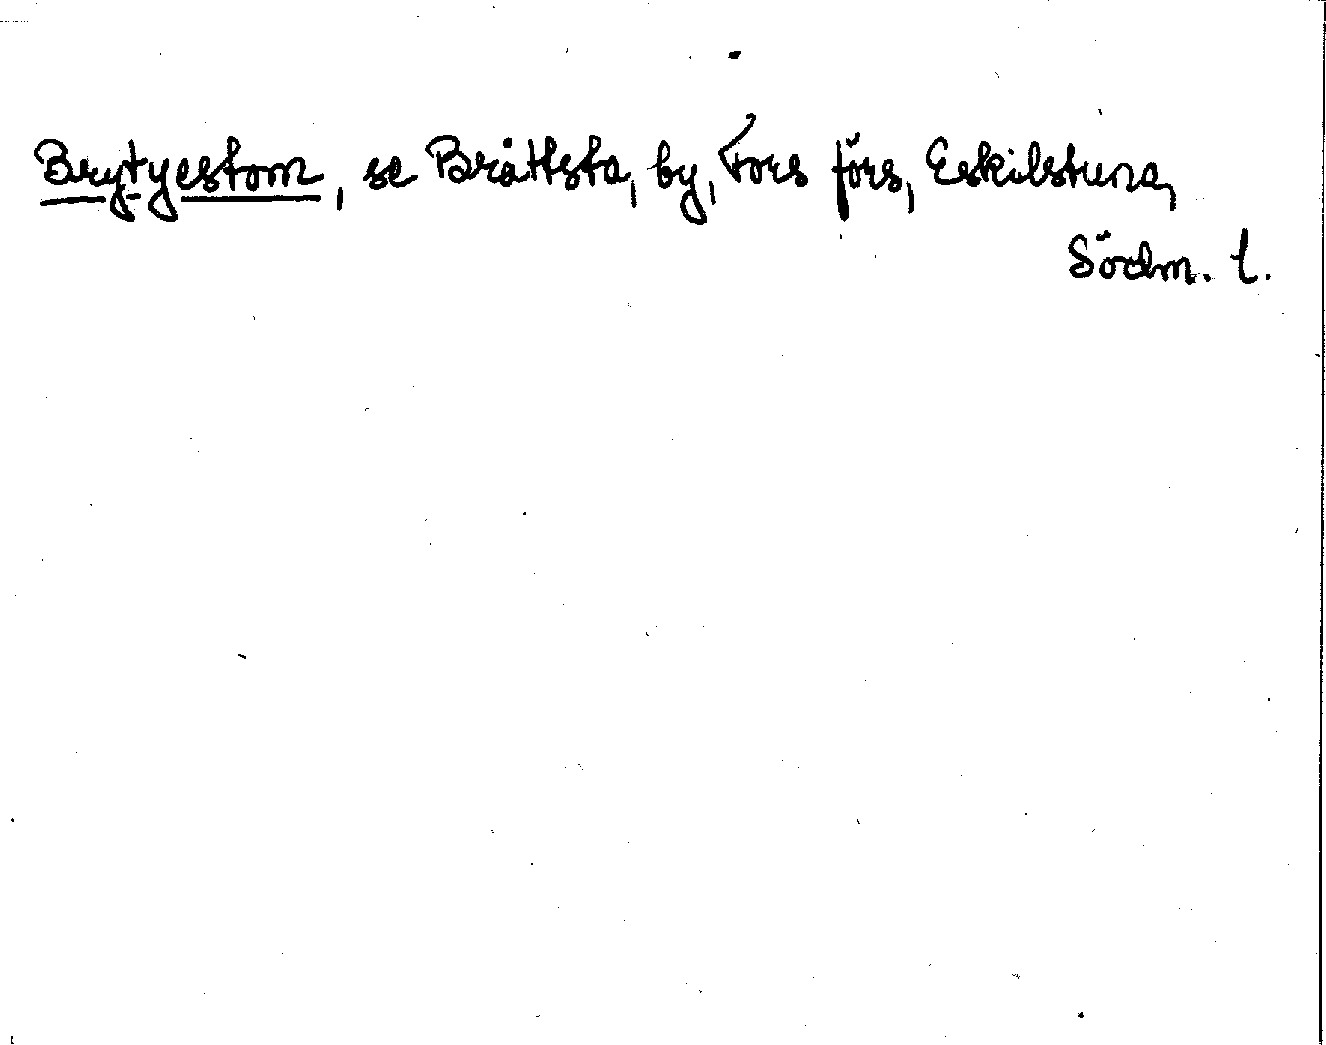 Brytyestom, se Bråttsta, by, Fors förs, Eskilstuna,
Södm. l.